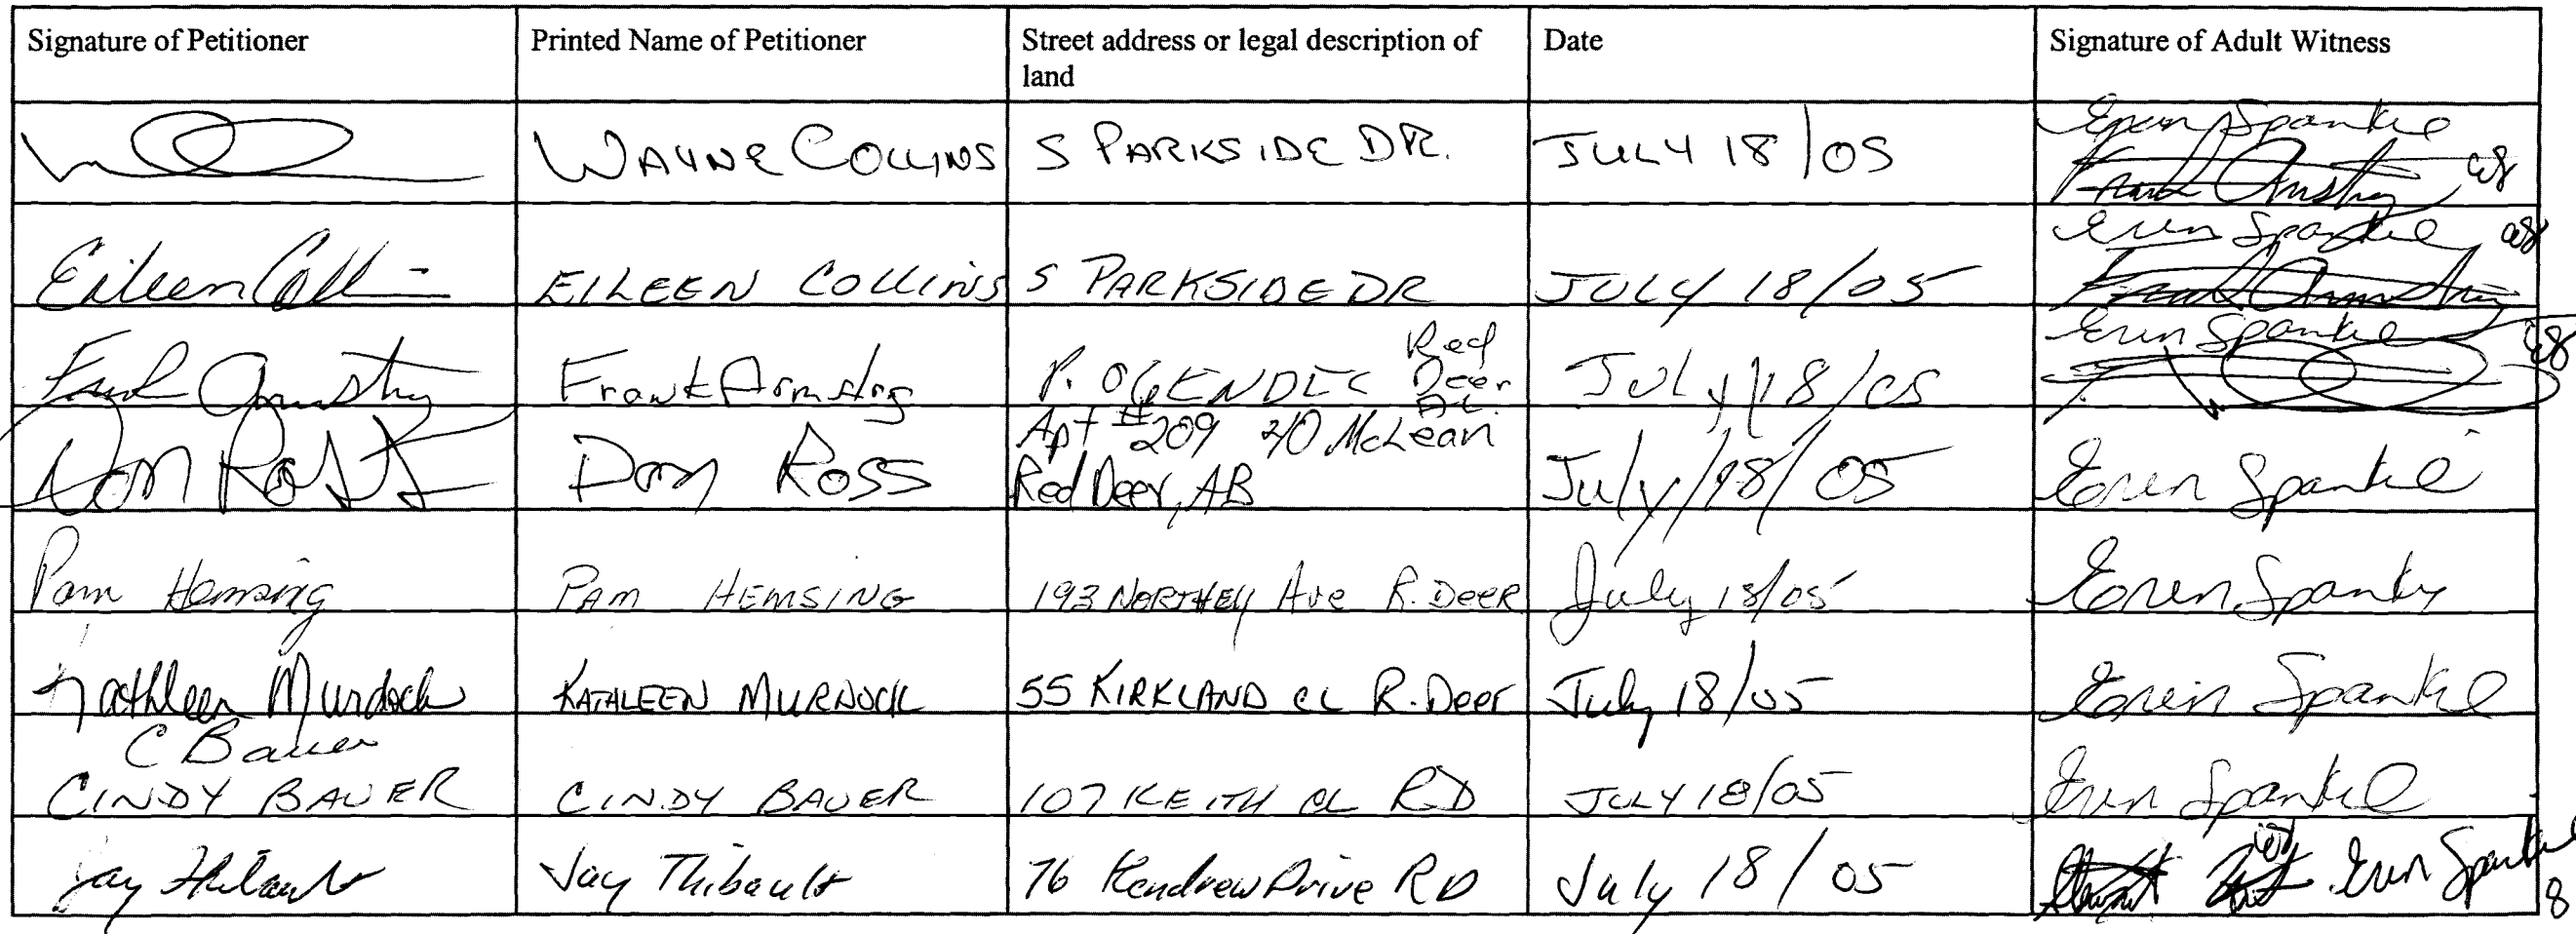 Signature of Petitioner
Printed Name of Petitioner
Street address or legal description of
land
Date
Signature of Adult Witness
WAYNE COLLINS
5 PARKSIDE DR.
JULY 18/05
Eren Spankie
Frank Armstrong
Eileen Colli
EILEEN COLLINS
5 PARKSIDE DR
JULY 18/05
Eren Spankie
Frank Armstrong
Frank Armstrong
Frank Armstrong
Red
Deer
JULY 18/05
Eren Spankie
Don Ross
Don Ross
Apt #209 McLean
Red Deer, AB
July/18/05
Eren Spankie
Pam Hemsing
PAM HEMSING
193 NORTHEY Ave R. DEER
July 18/05
Eren Spanky
Kathleen Murdock
KATHLEEN MURDOCK
55 KIRKLAND CL R. Deer
July 18/05
Eren Spankie
C Bauer
CINDY BAUER
CINDY BAUER
107 KEITH CL RD
JULY 18/05
Eren Spankie
Jay Thibault
Jay Thibault
76 Kendrew Drive RD
July 18/05
Eren Spankie